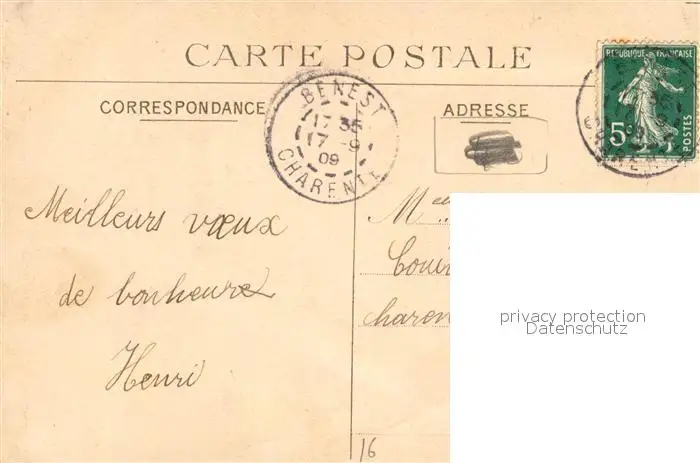 CARTE POSTALE
CORRESPONDANCE
ADRESSE
BENEST
17 35
17 -9
09
CHARENTE
REPUBLIQUE FRANCAISE
5c
POSTES
Meilleurs vœux
de bonheur
Henri
Melle
charen
privacy protection
Datenschutz
16